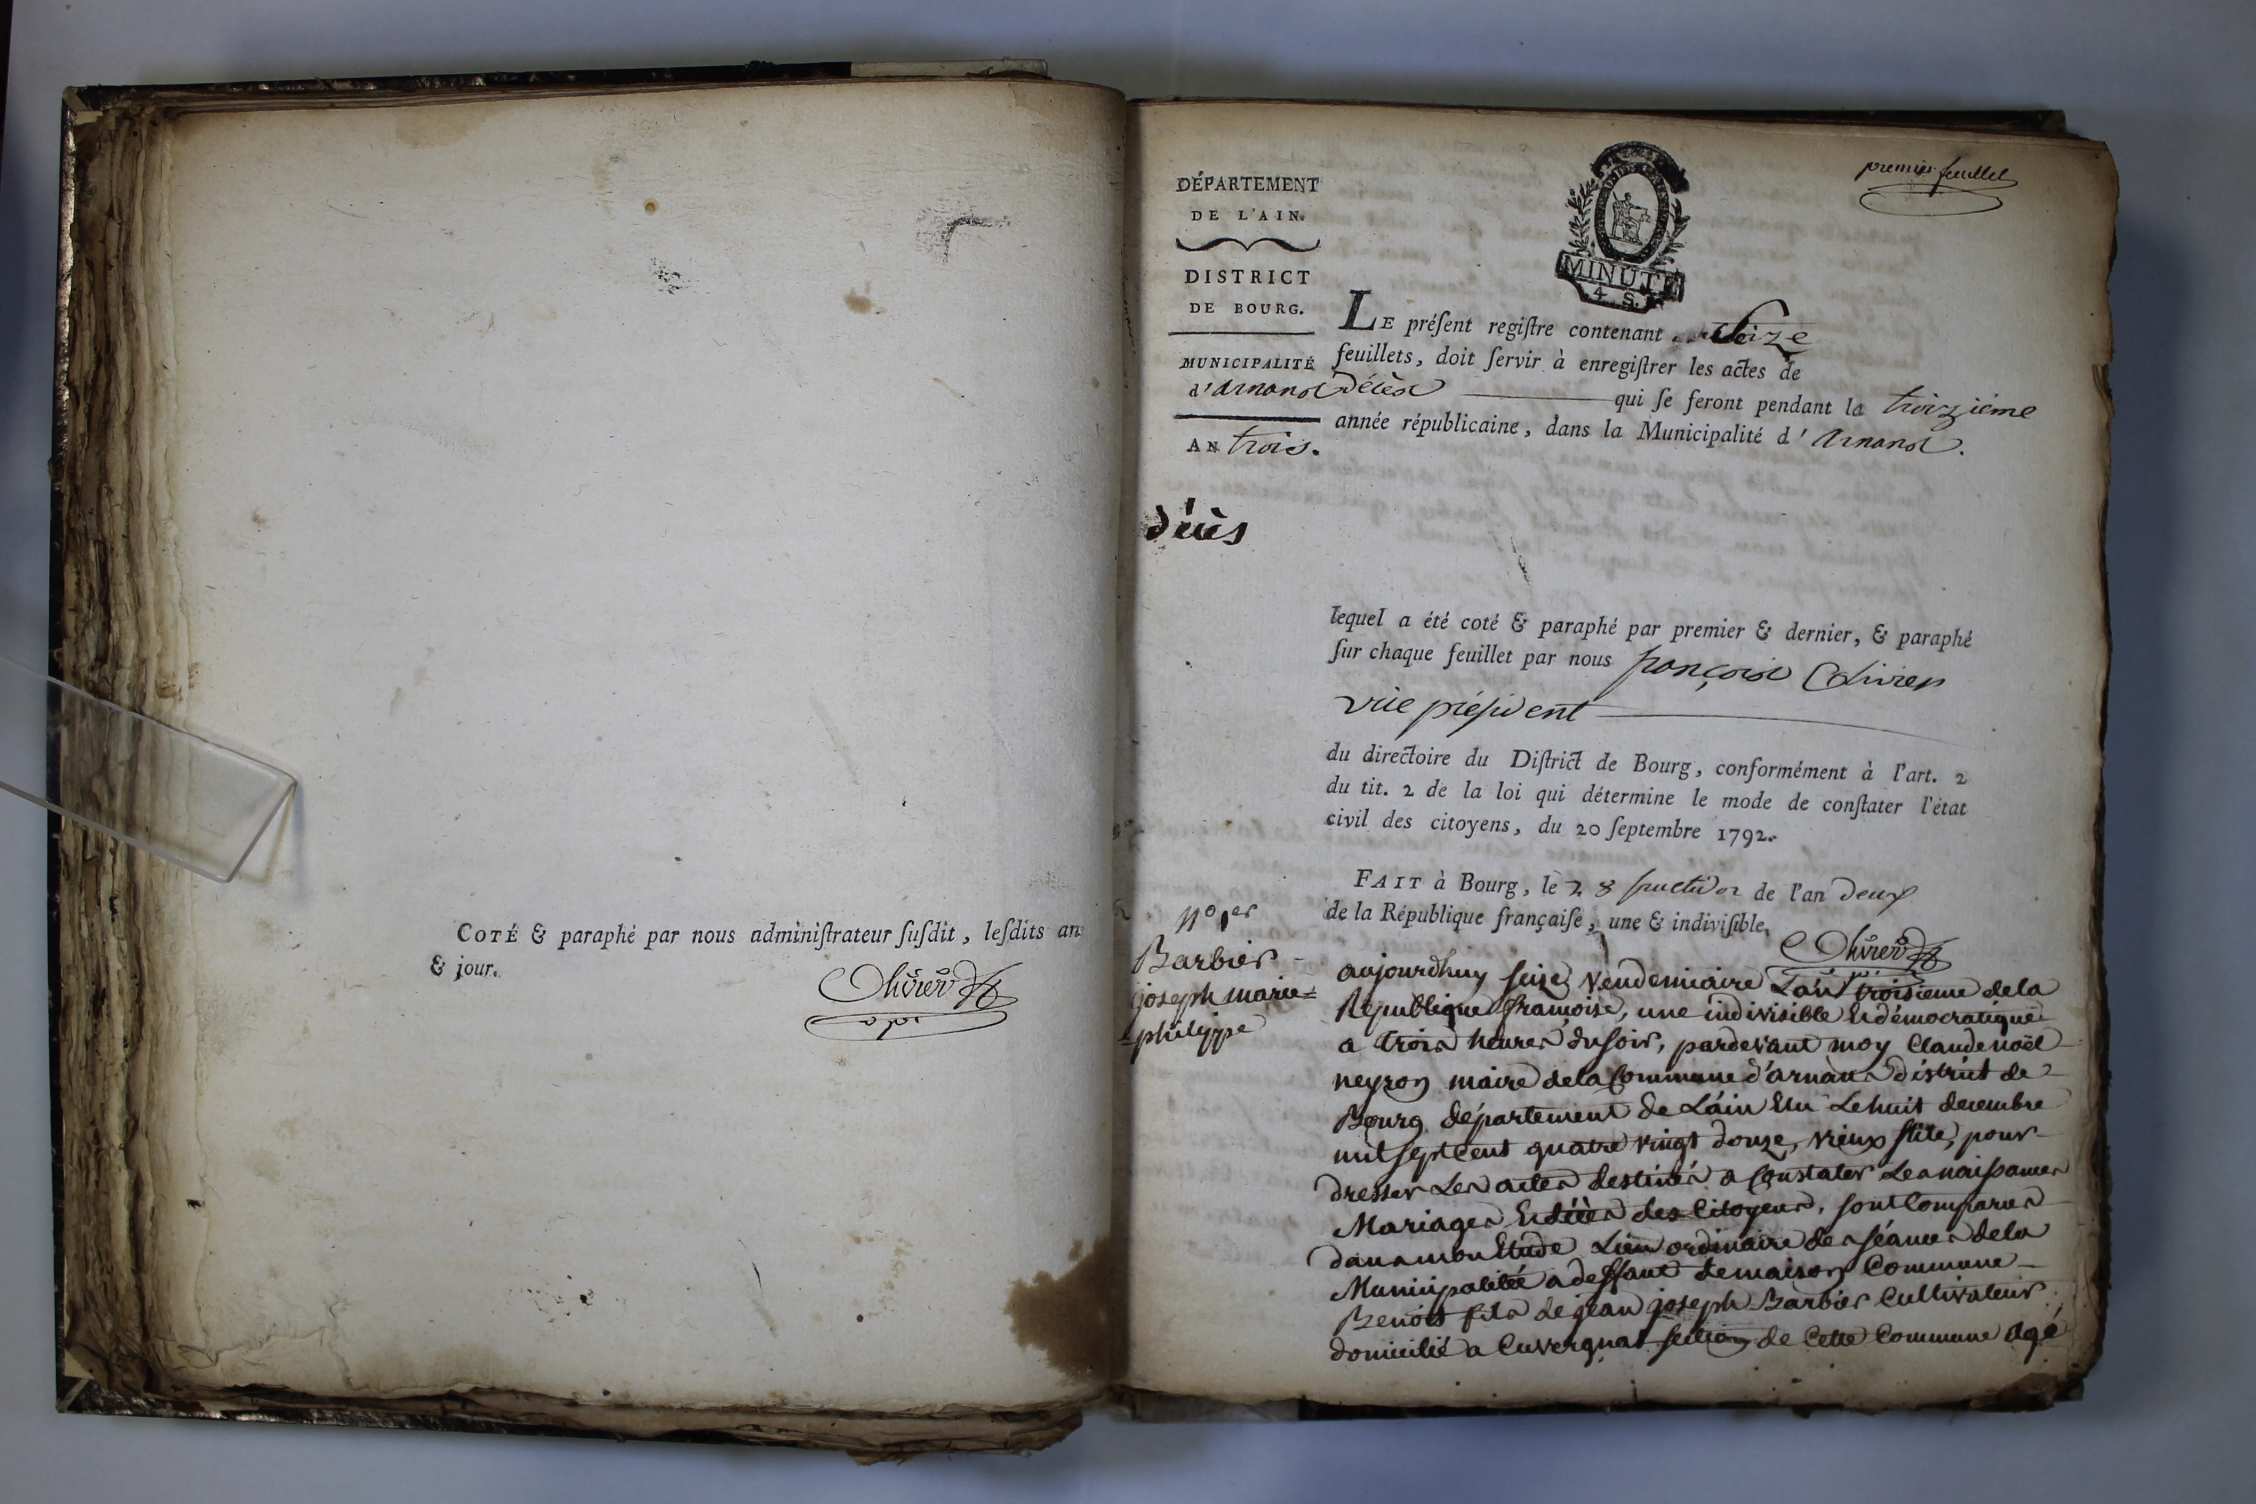 COTÉ & paraphé par nous adminiſtrateur ſuſdit, leſdits an
& jour.
Olivier
premier feuillet
MINUTE
4. S.
DÉPARTEMENT
DE L'AIN.
DISTRICT
DE BOURG.
MUNICIPALITÉ
d'arnans
AN trois.
LE préſent regiſtre contenant Seize
feuillets, doit ſervir à enregiſtrer les actes de
décès qui ſe feront pendant la troizième
année républicaine, dans la Municipalité d'Arnans.
décès
lequel a été coté & paraphé par premier & dernier, & paraphé
ſur chaque feuillet par nous françois Olivier
vice préſident
du directoire du Diſtrict de Bourg, conformément à l'art. 2
du tit. 2 de la loi qui détermine le mode de conſtater l'état
civil des citoyens, du 20 ſeptembre 1792.
FAIT à Bourg, le 28 fructidor de l'an deux
de la République françaiſe, une & indiviſible.
Olivier
No 1er
Barbier
joseph marie=
=philippe
aujourdhuy seize vendemiaire L'an troisieme de la
Republique françoise, une indivisible et démocratique
a trois heures du soir, pardevant moy Claude noël
neyron maire de la Commune d'arnans district de
Bourg département de L'ain élu Le huit decembre
mil sept cent quatre vingt douze, vieux stile, pour
dresser Les actes destinés a Constater Les naissances
Mariages et décès des Citoyens, sont Comparus
dans mon Etude Lieu ordinaire des séances de la
Municipalité a deffaut de maison Commune
Benoit fils de jean joseph Barbier Cultivateur
domicilié a Cuvergnat section de Cette Commune agé